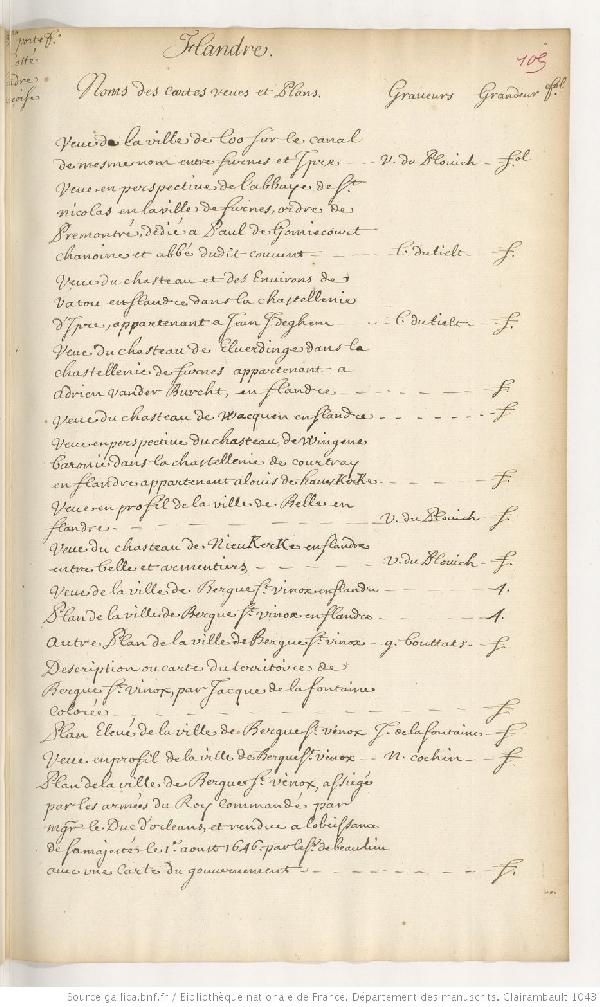 portef.
costé
Flandre.
105
Noms des cartes veues et Plans. Graveurs Grandeur fol
Veue de la ville de Loo sur le canal
de mesme nom entre furnes et Ipre - - v. du Plouich - fol
Veue en perspective de l'abbaye de St.
nicolas en la ville de furnes, ordre de
Premontré, dédié a Paul de Gomiecourt
chanoine et abbé dudit couvent - - - l. du tielt - f.
Veue du chasteau et des Environs de
Vatou en flandre dans la chastellenie
d'Ipre, appartenant a Jean J. deghem - - l. du tielt - f.
Veue du chasteau de Eluerdinge dans la
chastellenie de furnes appartenant a
adrien vander Burcht, en flandre - - - - f.
Veue du chasteau de Wacquen en flandre - - - - f.
Veue en perspective du chasteau de Wingene
baronie dans la chastellenie de courtray
en flandre appartenent a louis de hauerKerKe - - - f.
Veue en profil de la ville de Belle en
flandre - - - - v. du Plouich - f.
Veue du chasteau de NieuKerKe en flandre
entre belle et armentiers - - - v. du Plouich - f.
Veue de la ville de Bergue St. vinox en flandre - - - 1.
Plan de la ville de Bergue St. vinox en flandre - - - 1.
Autre Plan de la ville de Bergue St. vinox - g. bouttats - f.
Description ou carte du territoire de
Bergue St. vinox, par Jacque de la fontaine
colorée - - - - f.
Plan Elevé de la ville de Bergue St. vinox J. de la fontaine - f
Veue en profil de la ville de Bergue St. vinox - - N. cochin - - f
Plan de la ville de Bergue St. vinox, assiegé
par les armées du Roy commandé par
mgr. le Duc d'orleans, et rendue a l'obeissance
de sa majesté le 1er. aoust 1646. par le Sr. de beaulieu
avec vne Carte du gouvernement - - - - f.
Source gallica.bnf.fr / Bibliothèque nationale de France. Département des manuscrits. Clairambault 1043